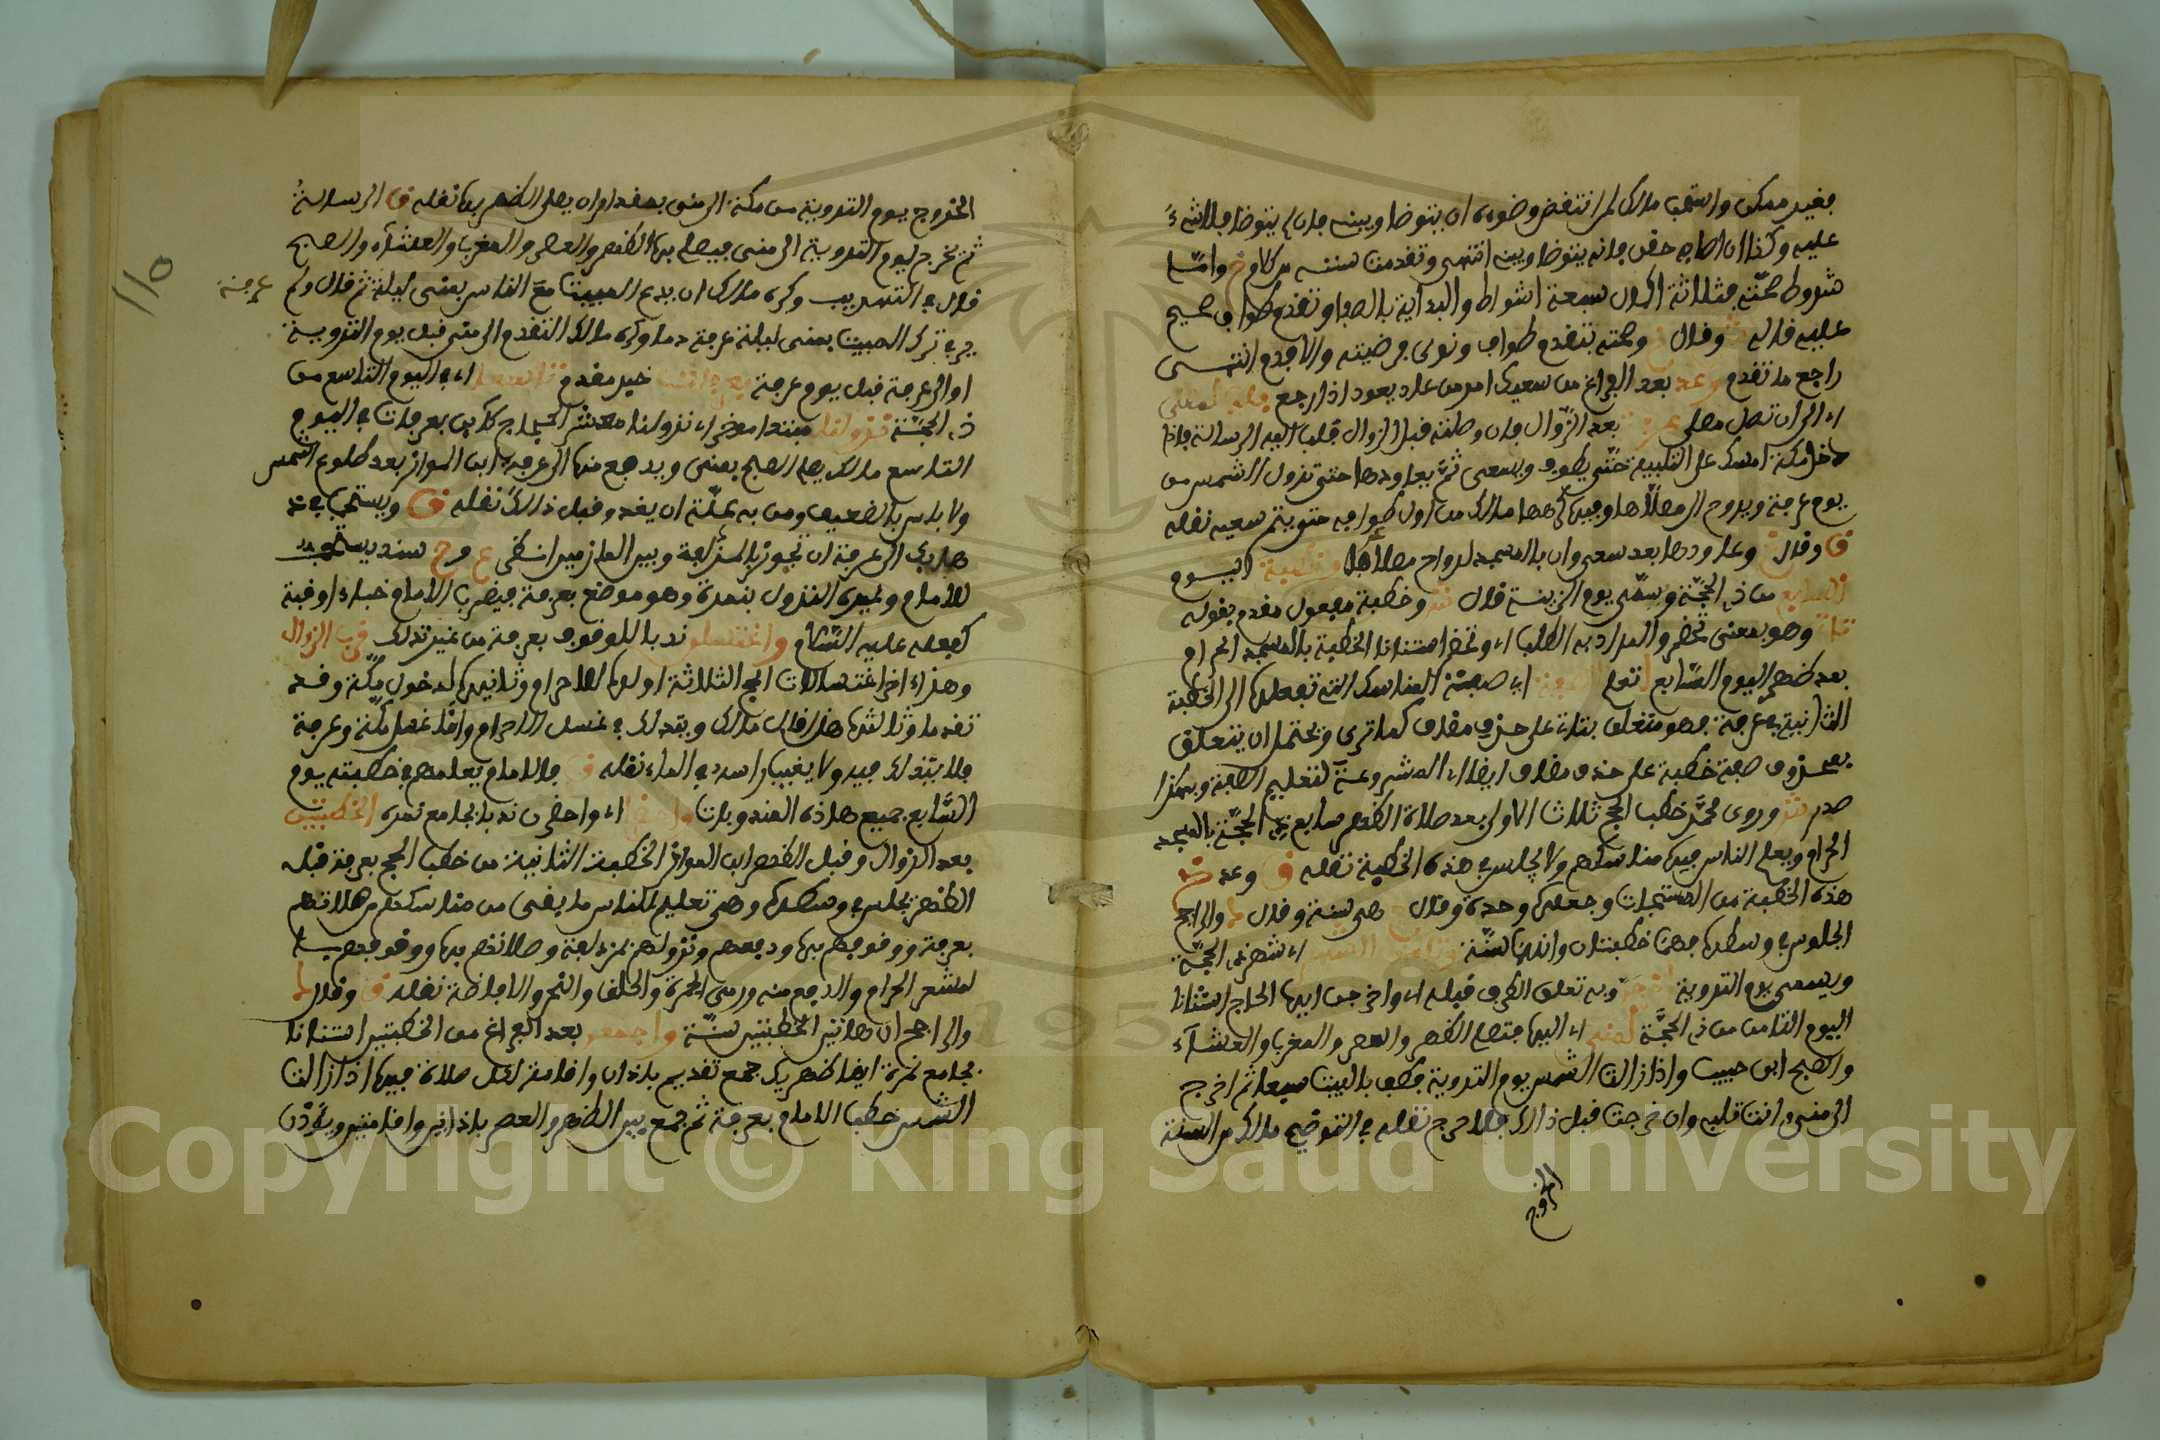 بغير ممكن واستحب مالك لمن انتقض وضوءه ان يتوضا ويبني فان لم يتوضا فلا شيء
عليه وكذا ان اصابه حقن فانه يتوضا ويبني انتهى وتقدمت سننه من كلام ح واما
شروط صحته فثلاثة اكمال سبعة اشواط والبداية بالصفا وتقدم طواف صحيح
عليه قاله وقال وصحته بتقدم طواف ونوى فرضيته والا فدم انتهى
راجع ما تقدم وعد بعد الفراغ من سعيك امر من عاد يعود اذا رجع فلب لمصلى
اي الى ان تصل مصلى عرفة بعد الزوال فان وصلته قبل الزوال فلب اليه الرسالة فاذا
دخل مكة امسك عن التلبية حتى يطوف ويسعى ثم يعاودها حتى تزول الشمس من
يوم عرفة ويروح الى مصلاها وفيها كرهها مالك من اول طوافه حتى يتم سعيه نقله
ق وقال وعاودها بعد سعي وان بالمسجد لرواح مصلى عرفة وخطبة اليوم
السابع من ذي الحجة ويسمى يوم الزينة قال وخطبة مفعول مقدم بقوله
تات وهو بمعنى تحضر والمراد به الطلب اي وتحضر استنانا الخطبة بالمسجد الحرام
بعد ظهر اليوم السابع لتعلم الصفة اي صفة المناسك التي تفعلها الى الخطبة
الثانية بعرفة فهو متعلق بتات على حذف مضاف كما ترى ويحتمل ان يتعلق
بمحذوف صفة خطبة على حذف مضاف ايضا اي المشروعة لتعليم الصفة وبهذا
صدر وروى محمد خطب الحج ثلاث الاولى بعد صلاة الظهر سابع ذي الحجة بالمسجد
الحرام ويعلم الناس فيها مناسكهم ولا يجلس في هذه الخطبة نقله ق وعد
هذه الخطبة من المستحبات وجعلها وحدة وقال ح هي سنة وقال والراجح
الجلوس في وسطها فهما خطبتان وانها سنة وثامن الشهر اي شهر ذي الحجة
ويسمى يوم التروية اخرجن وبه تعلق الظرف قبله اي واخرجن ايها الحاج استنانا
اليوم الثامن من ذي الحجة لمنى اي اليها فتصلي الظهر والعصر والمغرب والعشاء
والصبح ابن حبيب واذا زالت الشمس يوم التروية فطف بالبيت سبعا ثم اخرج
الى منى وانت تلبي وان خرجت قبل ذلك فلا حرج نقله في التوضيح مالك من السنة
الخروج
الخروج يوم التروية من مكة الى منى بمقدار ان يصلي الظهر بها نقله ق الرسالة
ثم يخرج ليوم التروية الى منى فيصلي بها الظهر والعصر والمغرب والعشاء والصبح
قال في التهذيب وكره مالك ان يدع المبيت مع الناس بمنى ليلة ثم قال ولم
عرفة
ير في ترك المبيت بمنى ليلة عرفة دما وكره مالك التقدم الى منى قبل يوم التروية
او الى عرفة قبل يوم عرفة خبر مقدم تاسعا اي في اليوم التاسع من
ذي الحجة نزولنا مبتدا مؤخر اي نزولنا معشر الحجاج كائن بعرفات في اليوم
التاسع مالك يصلي الصبح بمنى ويدفع منها الى عرفة ابن المواز بعد طلوع الشمس
ولا باس بالضعيف ومن به علة ان يغدو قبل ذلك نقله ق ويستحب في
ذهابك الى عرفة ان تجوز بالمزدلفة وبين المازمين انظر ع و ح سند يستحب
للامام وغيره النزول بنمرة وهو موضع بعرفة فيضرب الامام خباء او قبة
كفعله عليه السلام واغتسلن ندبا للوقوف بعرفة من غير تدلك قرب الزوال
وهذا اخر اغتسالات الحج الثلاثة اولها للاحرام وثانيها لدخول مكة وقد
تقدما وثالثها هذا قال مالك ويتدلك في غسل الاحرام واما غسل مكة وعرفة
فلا يتدلك فيه ولا يغيب راسه في الماء نقله ق فالامام يعلمهم في خطبته يوم
السابع جميع هذه المندوبات واحضرا اي واحضرن ندبا بجامع نمرة الخطبتين
بعد الزوال وقبل الظهر ابن المواز الخطبة الثانية من خطب الحج بعرفة قبل
الظهر يجلس في وسطها وهي تعليم للناس ما بقي من مناسكهم من صلاتهم
بعرفة ووقوفهم بها ودفعهم ونزولهم بمزدلفة وصلاتهم بها ووقوفهم بـ
لمشعر الحرام والدفع منه ورمي الجمرة والحلق والنحر والافاضة نقله ق وقال
والراجح ان هاتين الخطبتين سنة واجمعن بعد الفراغ من الخطبتين استنانا
بجامع نمرة ايضا ظهريك جمع تقديم باذان واقامة لكل صلاة فيها اذا زالت
الشمس خطب الامام بعرفة ثم جمع بين الظهر والعصر باذانين واقامتين ويؤذن
١١٥
Copyright © King Saud University